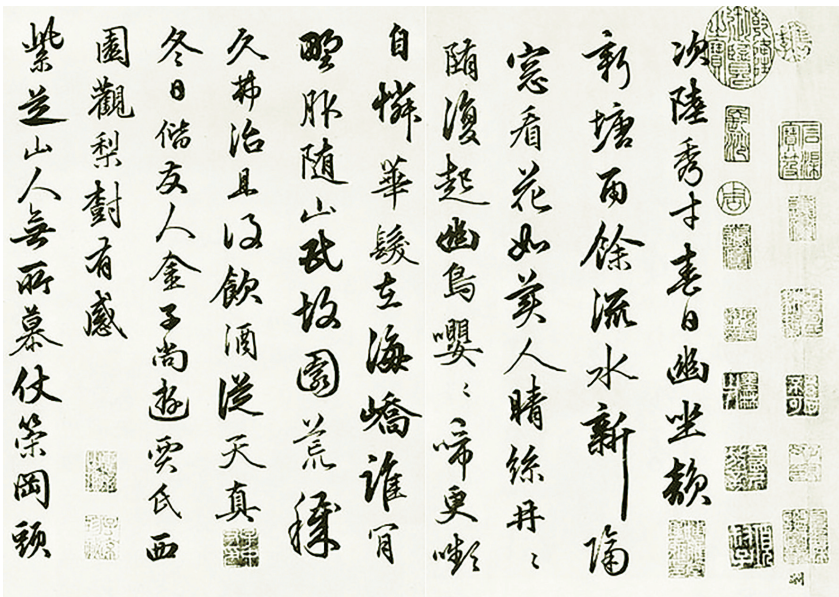 次陸秀才春日幽坐韻
新塘雨餘流水新隔
窓看花如美人晴絲冉〻
随復起幽鳥嚶〻啼更
自憐華髮在海嶠誰肯
野服随山民故園荒穢
久弗治且得飲酒從天真
冬日偕友人金子尚遊賈氏西
園觀梨樹有感
紫芝山人無所慕仗策岡頭